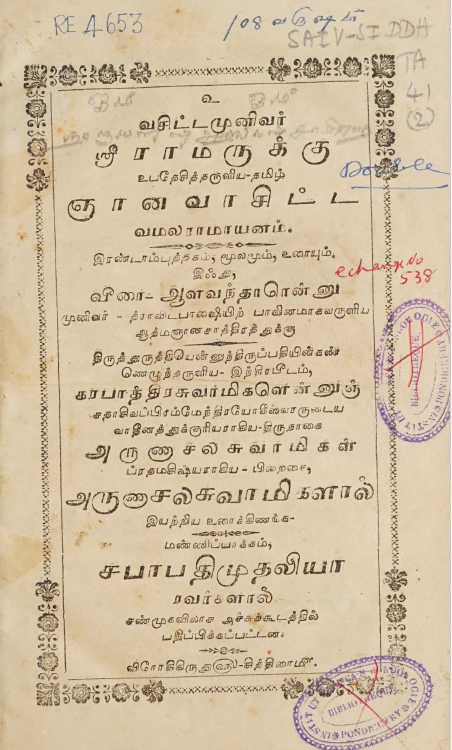 RE A 653
108 வருஷம்
SAIV-SIDDH
TA
41
(2)
Double
echange No
538
உ
வசிட்டமுனிவர்
ஸ்ரீராமருக்கு
உபதேசித்தருளிய-தமிழ்
ஞானவாசிட்ட
வமலராமாயனம்.
இரண்டாம்புத்தகம், மூலமும், உரையும்.
இஃது,
விரை-ஆளவந்தாரென்னு
முனிவர்-த்ராவிடபாஷையிற் பாவினமாகவருளிய
ஆத்மஞானசாத்திரத்துக்கு
திருத்துருத்தியென்னுந்திருப்பதியின்கண்
ணெழுந்தருளிய-இந்திரபீடம்,
கரபாத்திரசுவாமிகளென்னுஞ்
சதாசிவப்பிரம்மேந்திரயோகீஸ்வரருடைய
வாதீனத்துக்குரியராகிய-திருநாகை
அருணாசலசுவாமிகள்
ப்ரதமசிஷ்யராகிய-பிறைசை,
அருணாசலசுவாமிகளால்
இயற்றிய உரைக்கிணங்க-
மண்ணிப்பாக்கம்,
சபாபதிமுதலியா
ரவர்களால்
சண்முகவிலாச அச்சுக்கூடத்தில்
பதிப்பிக்கப்பட்டன.
விரோதிகிருது௵-சித்திரைமீ.
BIBLIOTHEQUE
BIBLIOTHEQUE
PONDICHERY